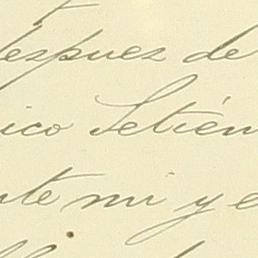 despuez de
ico Setién
nte mi y e